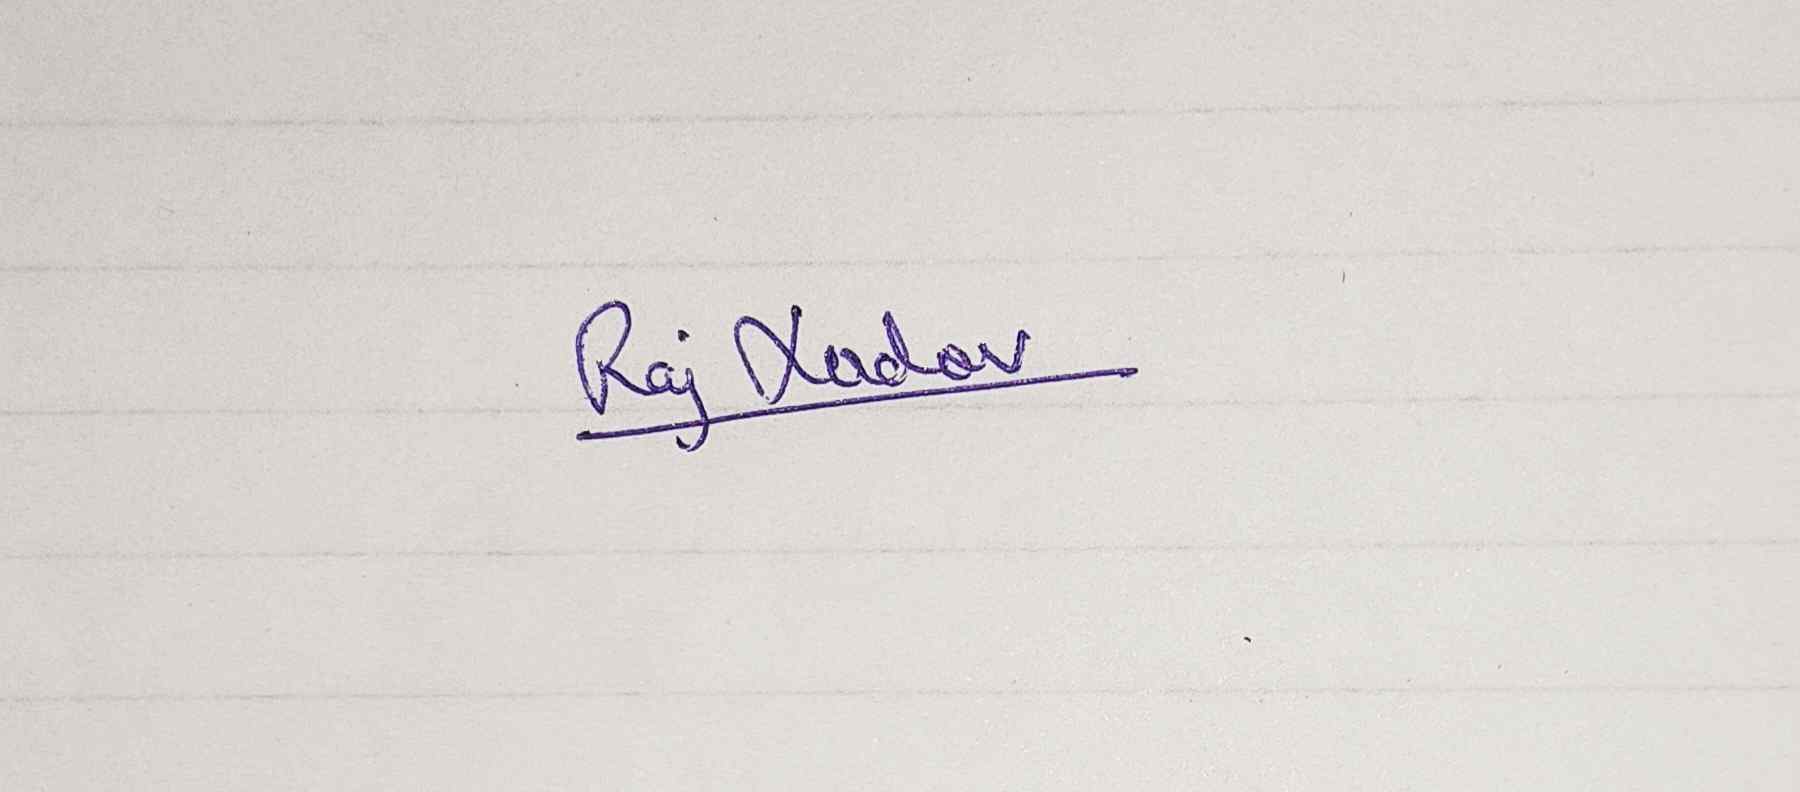 Raj Yadav